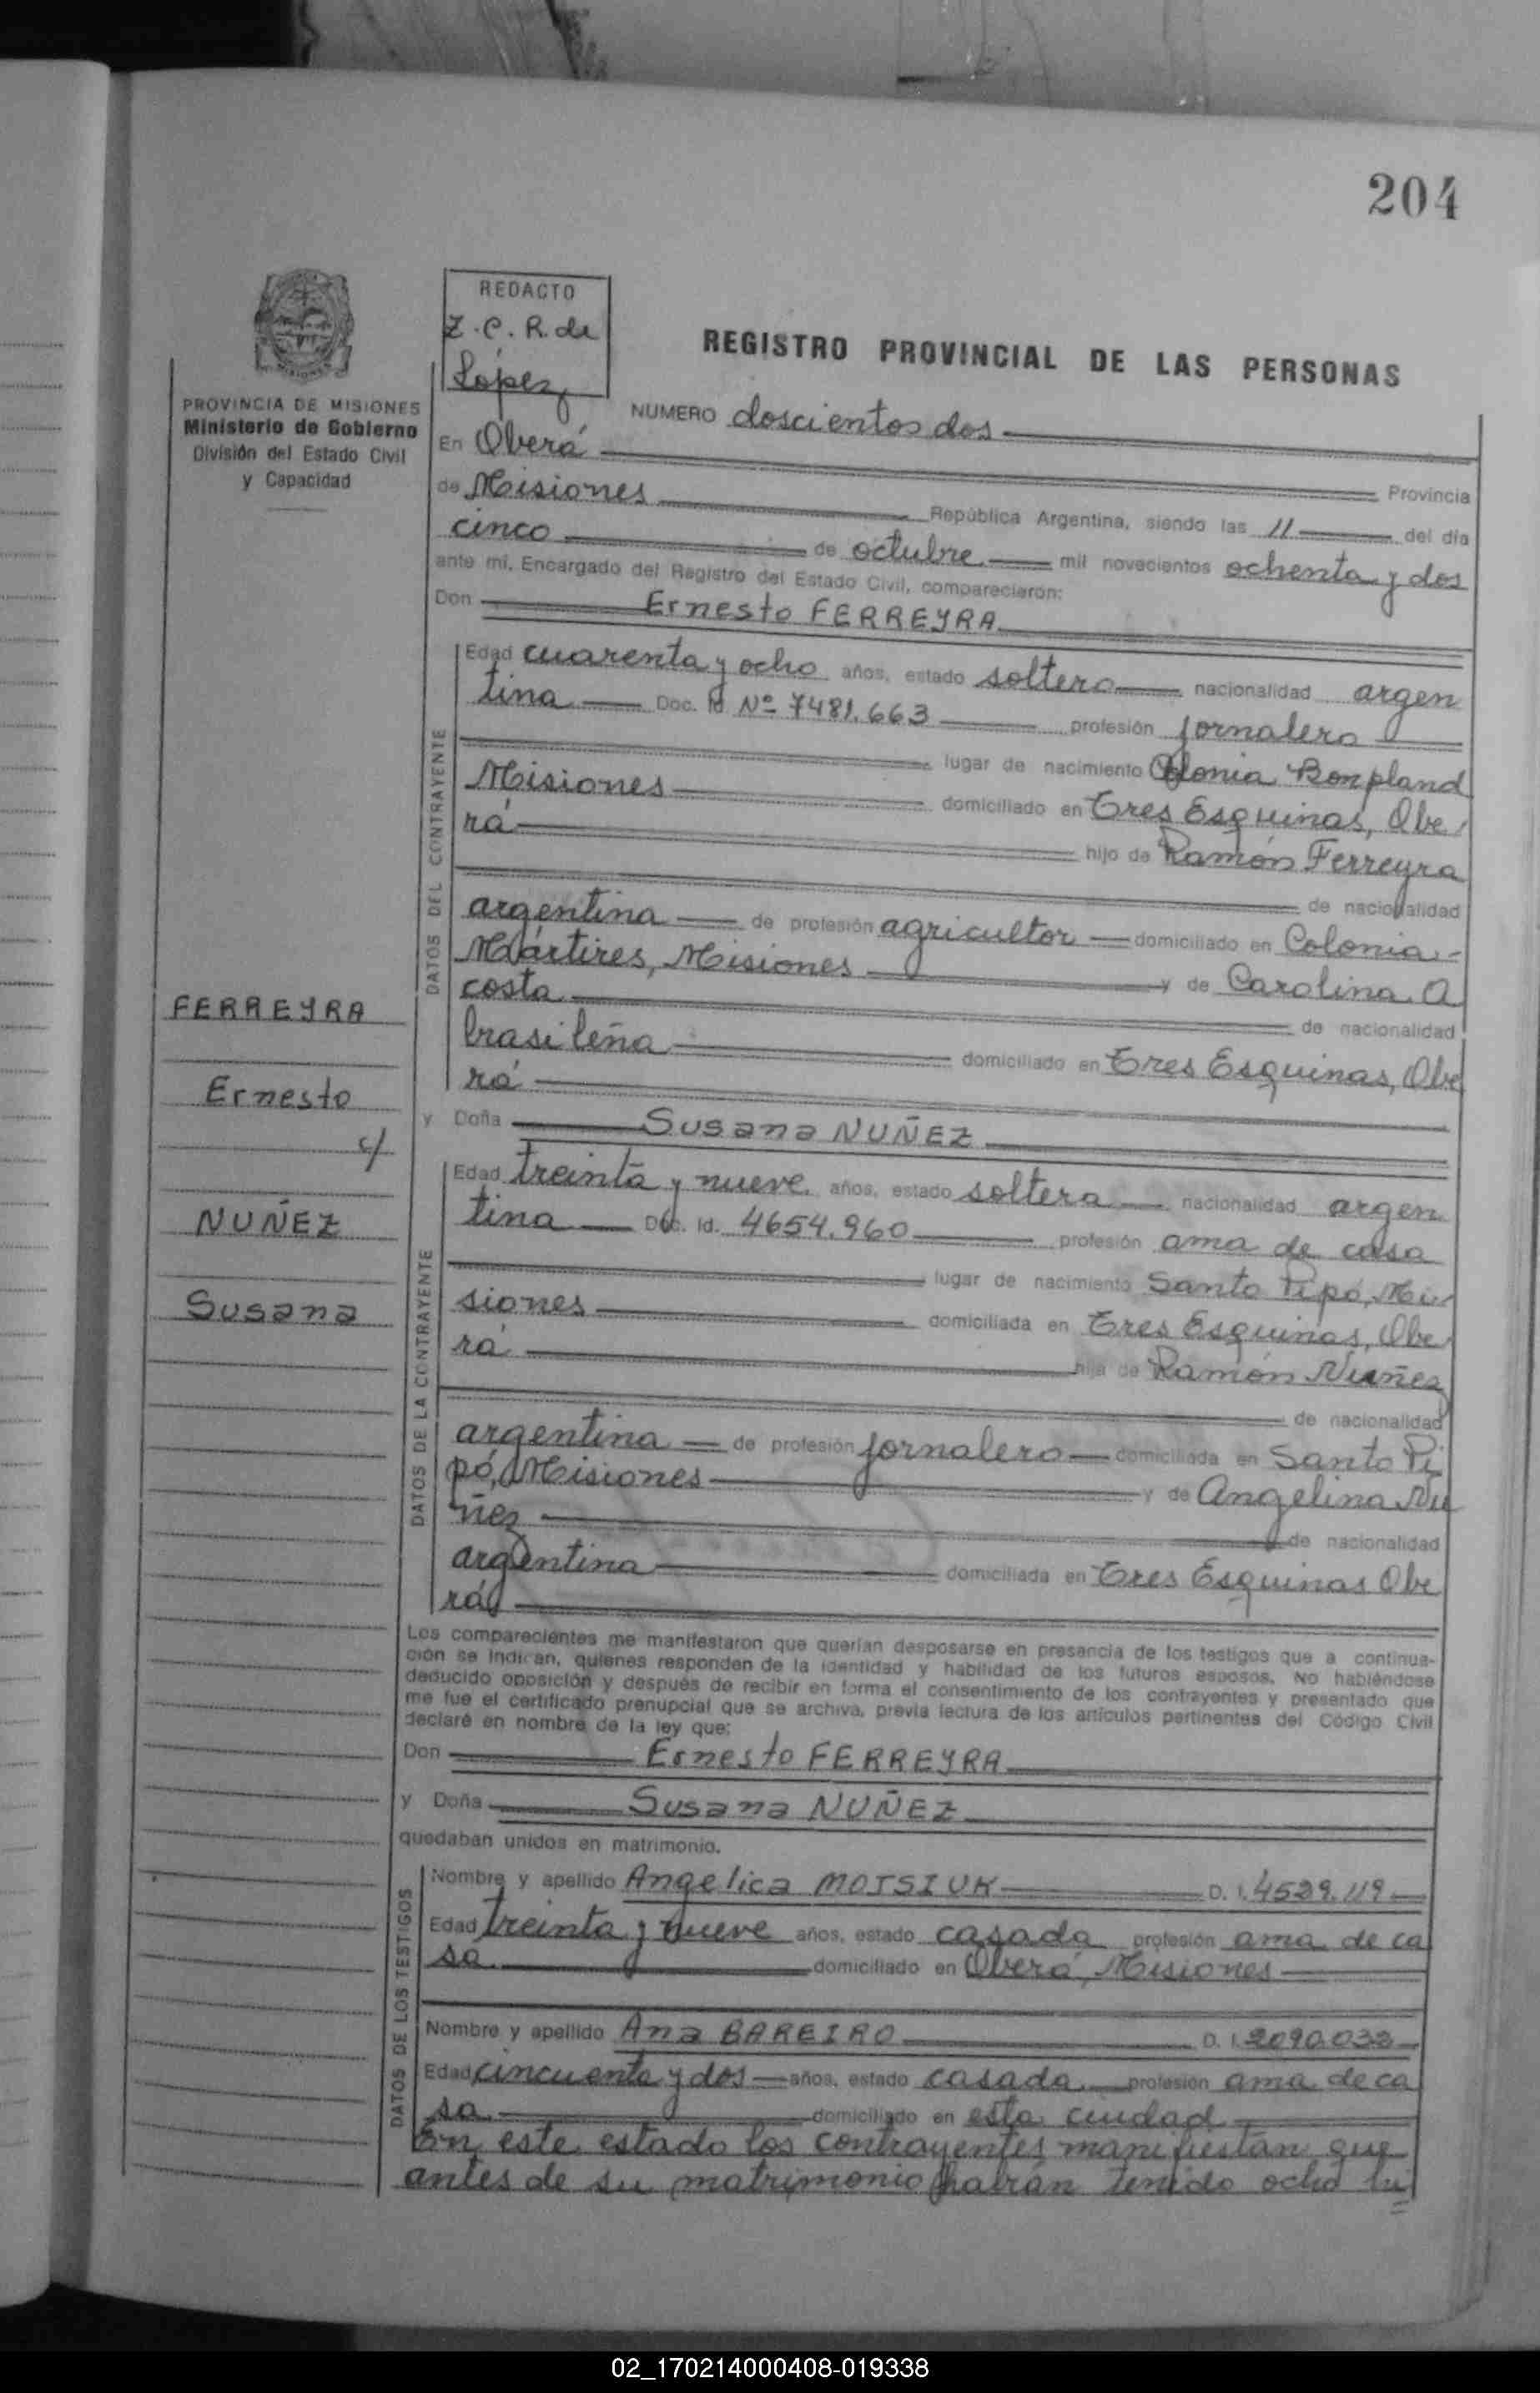 204
REDACTO
Z. C. R. de
López
REGISTRO PROVINCIAL DE LAS PERSONAS
PROVINCIA DE MISIONES
Ministerio de Gobierno
División del Estado Civil
y Capacidad
NUMERO doscientos dos
En Oberá Provincia
de Misiones República Argentina, siendo las 11 del día
cinco de octubre mil novecientos ochenta y dos
ante mí, Encargado del Registro del Estado Civil, comparecieron:
Don Ernesto FERREYRA
DATOS DEL CONTRAYENTE
Edad cuarenta y ocho años, estado soltero nacionalidad argen
tina Doc. Id Nº 7481.663 profesión jornalero
lugar de nacimiento Colonia Bompland
Misiones domiciliado en Tres Esquinas, Obe
rá hijo de Ramón Ferreyra
de nacionalidad
argentina de profesión agricultor domiciliado en Colonia
Mártires, Misiones y de Carolina A
costa de nacionalidad
brasileña domiciliado en Tres Esquinas, Obe
rá
FERREYRA
Ernesto
c/
NUÑEZ
Susana
y Doña Susana NUÑEZ
DATOS DE LA CONTRAYENTE
Edad treinta y nueve años, estado soltera nacionalidad argen
tina Doc. Id. 4654.960 profesión ama de casa
lugar de nacimiento Santo Pipó, Mi
siones domiciliada en Tres Esquinas, Obe
rá hija de Ramón Nuñez
de nacionalidad
argentina de profesión jornalero domiciliada en Santo Pi
pó, Misiones y de Angelina Nu
ñez de nacionalidad
argentina domiciliada en Tres Esquinas Obe
rá
Los comparecientes me manifestaron que querían desposarse en presencia de los testigos que a continua-
ción se indican, quienes responden de la identidad y habilidad de los futuros esposos. No habiéndose
deducido oposición y después de recibir en forma el consentimiento de los contrayentes y presentado que
me fue el certificado prenupcial que se archiva, previa lectura de los artículos pertinentes del Código Civil
declaré en nombre de la ley que:
Don Ernesto FERREYRA
y Doña Susana NUÑEZ
quedaban unidos en matrimonio.
DATOS DE LOS TESTIGOS
Nombre y apellido Angelica MOTSIUK D. I. 4529.119
Edad treinta y nueve años, estado casada profesión ama de ca
sa domiciliado en Oberá, Misiones
Nombre y apellido Ana BAREIRO D. I. 2090.033
Edad cincuenta y dos años, estado casada profesión ama de ca
sa domiciliado en esta ciudad
En este estado los contrayentes manifiestan que
antes de su matrimonio habían tenido ocho hi
02_170214000408-019338